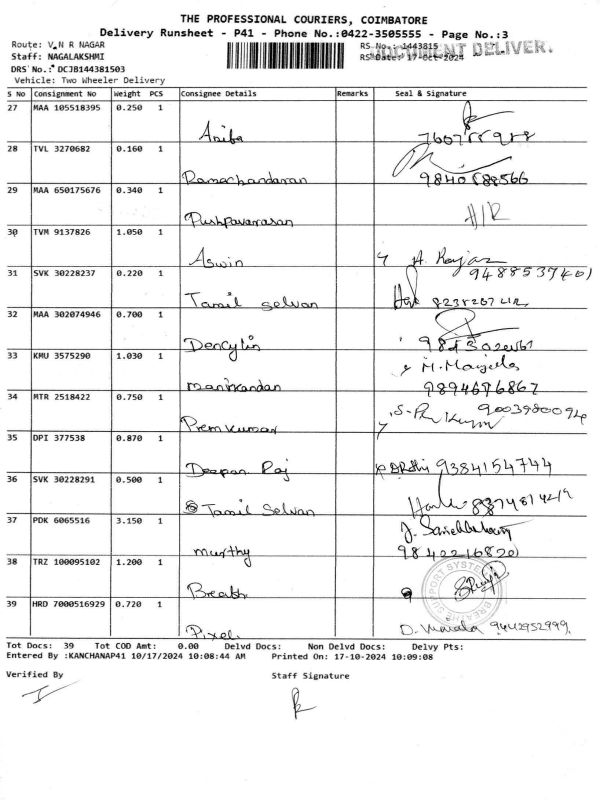 THE PROFESSIONAL COURIERS, COIMBATORE
Delivery Runsheet - P41 - Phone No.:0422-3505555 - Page No.:3
Route: V N R NAGAR RS No.: 1443815
DOCUMENT DELIVER.
Staff: NAGALAKSHMI RS Date: 17-Oct-2024
DRS No.: DCJB144381503
Vehicle: Two Wheeler Delivery
S No Consignment No Weight PCS Consignee Details Remarks Seal & Signature
27 MAA 105518395 0.250 1
Aniba
28 TVL 3270682 0.160 1
Ramachandaran 9840588566
29 MAA 650175676 0.340 1
Pushpavanasan H/R
30 TVM 9137826 1.050 1
Aswin
31 SVK 30228237 0.220 1 9488537401
Tamil selvan
32 MAA 302074946 0.700 1
Dencylin
33 KMU 3575290 1.030 1
manikandan 9894676867
34 MTR 2518422 0.750 1
Prem kumar 9003980094
35 DPI 377538 0.870 1
Deepan Raj 9384154744
36 SVK 30228291 0.500 1
Tamil Selvan
37 PDK 6065516 3.150 1
murthy 9840216820
38 TRZ 100095102 1.200 1
Breath
39 HRD 7000516929 0.720 1
Pixel 9442952999
Tot Docs: 39 Tot COD Amt: 0.00 Delvd Docs: Non Delvd Docs: Delvy Pts:
Entered By :KANCHANAP41 10/17/2024 10:08:44 AM Printed On: 17-10-2024 10:09:08
Verified By Staff Signature